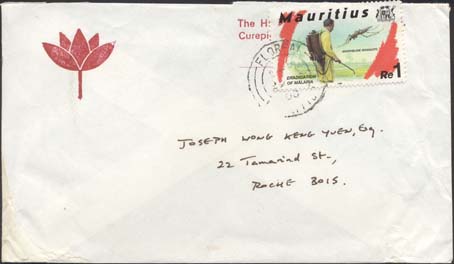 The H
Curepi
Mauritius
ANOPHELINE MOSQUITO
ERADICATION
OF MALARIA
Re1
JOSEPH WONG KENG YUEN, Esq.
22 Tamarind St.,
ROCHE BOIS.